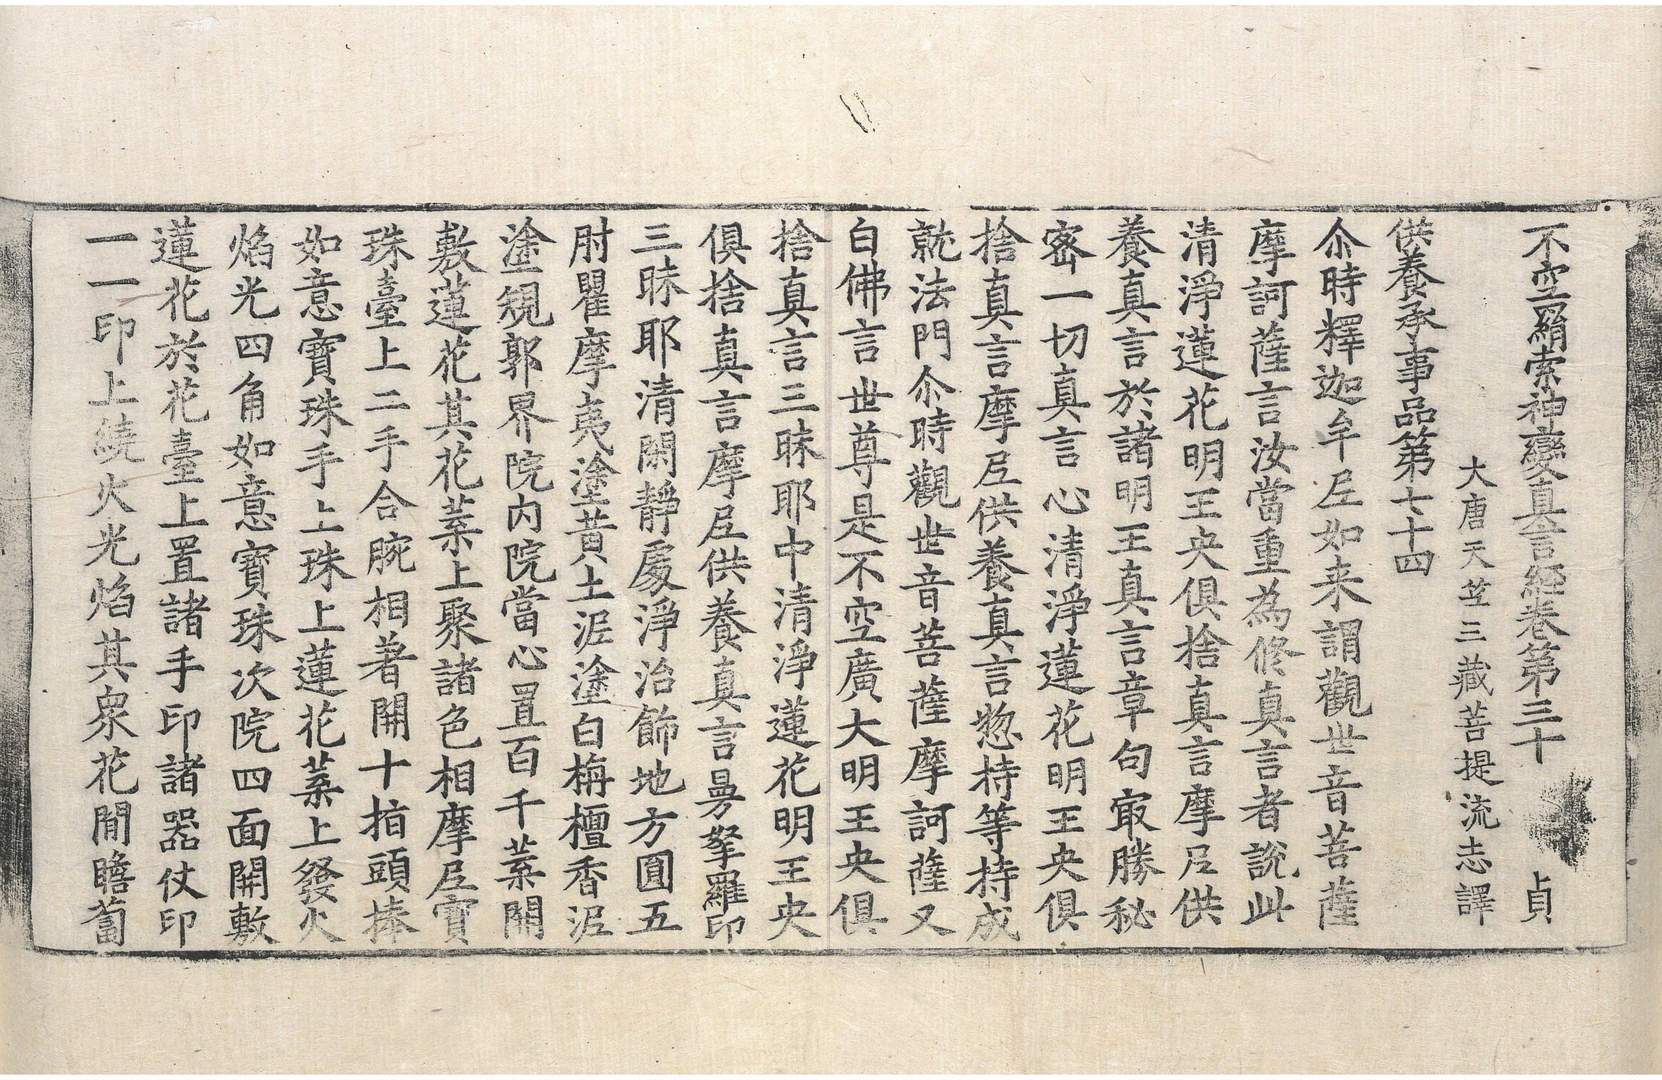 不空羂索神變真言經卷第三十 貞
大唐天竺三藏菩提流志譯
供養承事品第七十四
尒時釋迦牟𡰱如来謂觀世音菩薩
摩訶薩言汝當重為修真言者說此
清淨蓮花明王央俱捨真言摩𡰱供
養真言於諸明王真言章句㝡勝秘
密一切真言心清淨蓮花明王央俱
捨真言摩𡰱供養真言惣持等持成
就法門尒時觀世音菩薩摩訶薩又
白佛言世尊是不空廣大明王央俱
捨真言三昧耶中清淨蓮花明王央
俱捨真言摩𡰱供養真言曼拏羅印
三昧耶清閑靜處淨治飾地方圓五
肘瞿摩夷塗黃土泥塗白栴檀香泥
塗規郭界院內院當心置百千葉開
敷蓮花其花葉上聚諸色相摩𡰱寶
珠臺上二手合腕相著開十指頭捧
如意寶珠手上珠上蓮花葉上發火
焰光四角如意寶珠次院四面開敷
蓮花於花臺上置諸手印諸器仗印
一一印上繞火光焰其眾花閒瞻蔔